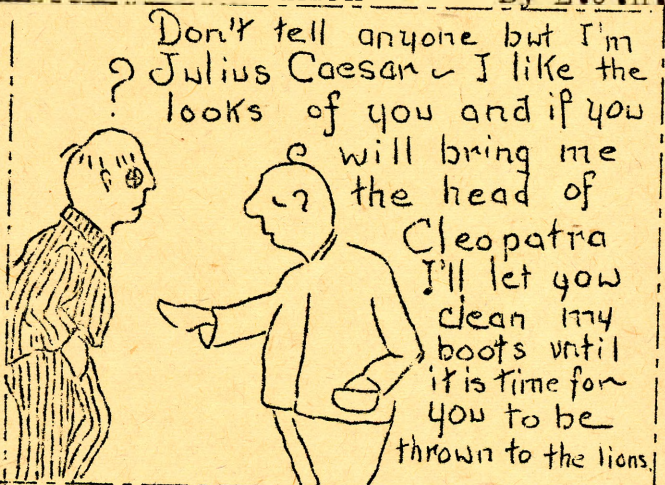 By
Don't tell anyone but I'm
? Julius Caesar ~ I like the
looks of you and if you
will bring me
the head of
Cleopatra
I'll let you
clean my
boots until
it is time for
you to be
thrown to the lions.